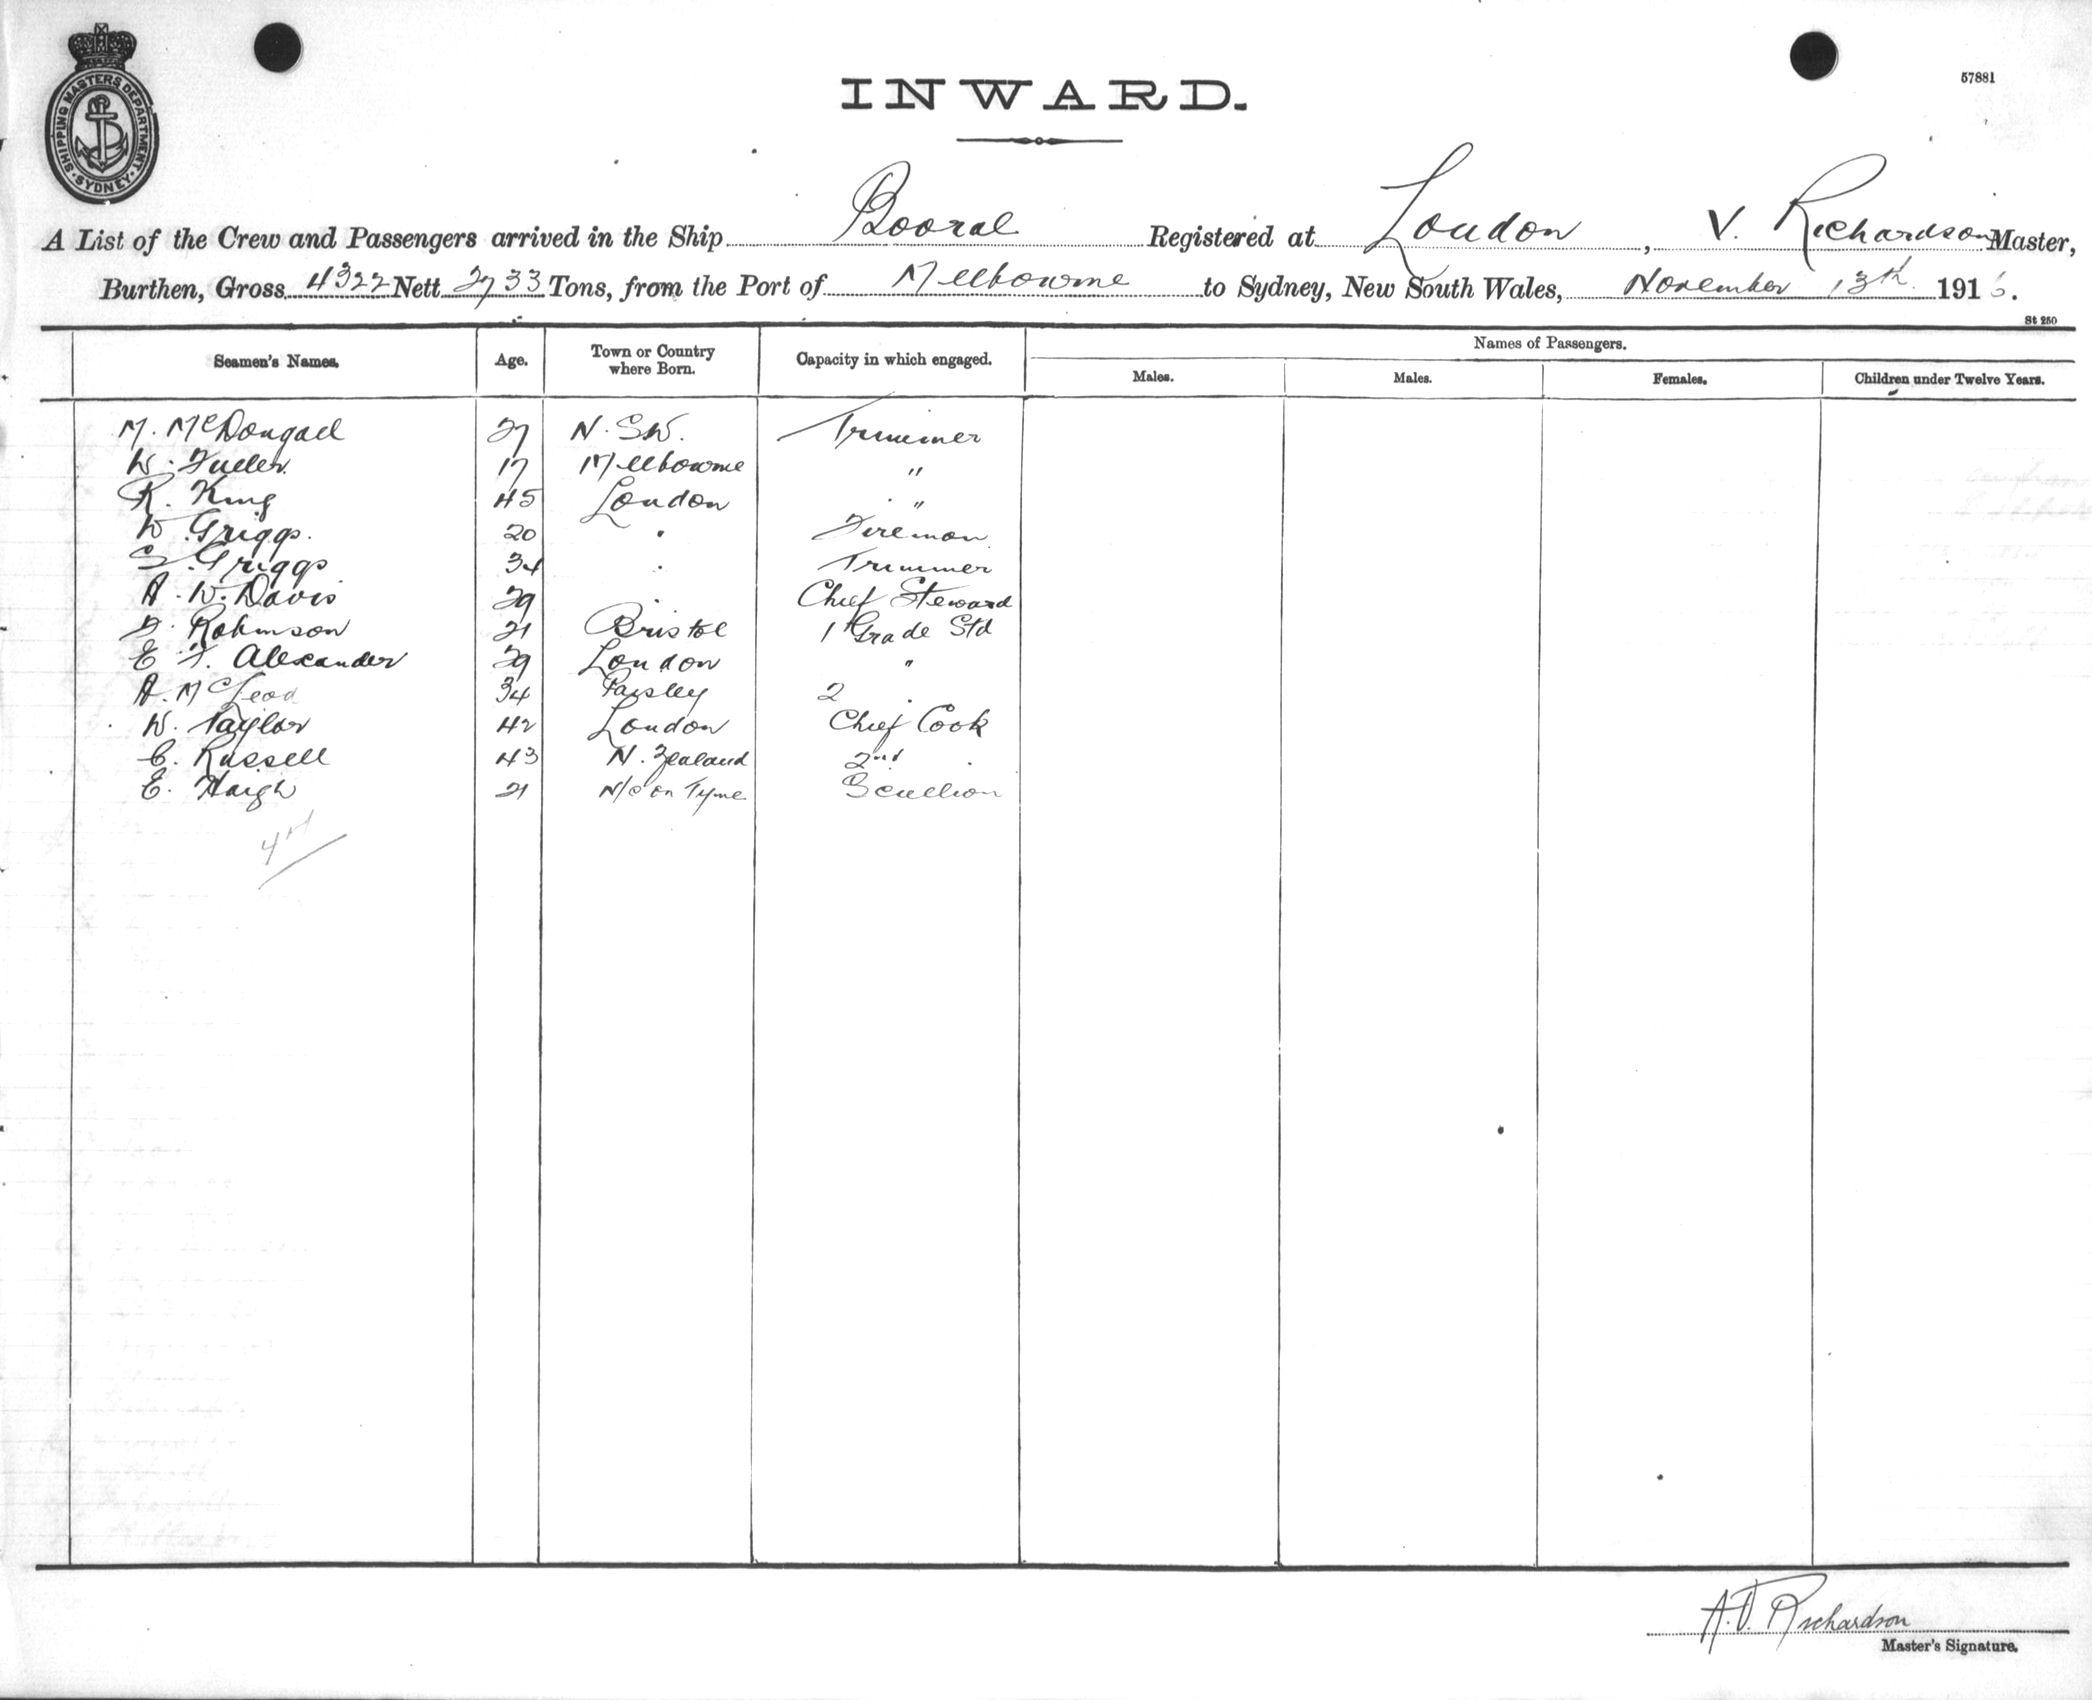 SHIPPING MASTERS DEPARTMENT · SYDNEY ·
57881
INWARD.
A List of the Crew and Passengers arrived in the Ship Booral Registered at London, V. Richardson Master,
Burthen, Gross 4322 Nett 2733 Tons, from the Port of Melbourne to Sydney, New South Wales, November 13th 1916.
St 250
Seamen's Names. Age. Town or Country where Born. Capacity in which engaged. Names of Passengers.
Males. Males. Females. Children under Twelve Years.
M. McDougall 27 N.S.W. Trimmer
W. Fuller 17 Melbourne "
R. King 45 London "
W. Griggs. 20 " Fireman
S. Griggs 34 " Trimmer
A. W. Davis 29 " Chief Steward
Robinson 21 Bristol 1st Grade Std
E. F. Alexander 29 London "
A. McLeod 34 Paisley 2 "
W. Taylor 42 London Chief Cook
C. Russell 43 N. Zealand 2nd "
E. Haigh 21 N/C on Tyne Scullion
A.V. Richardson
Master's Signature.